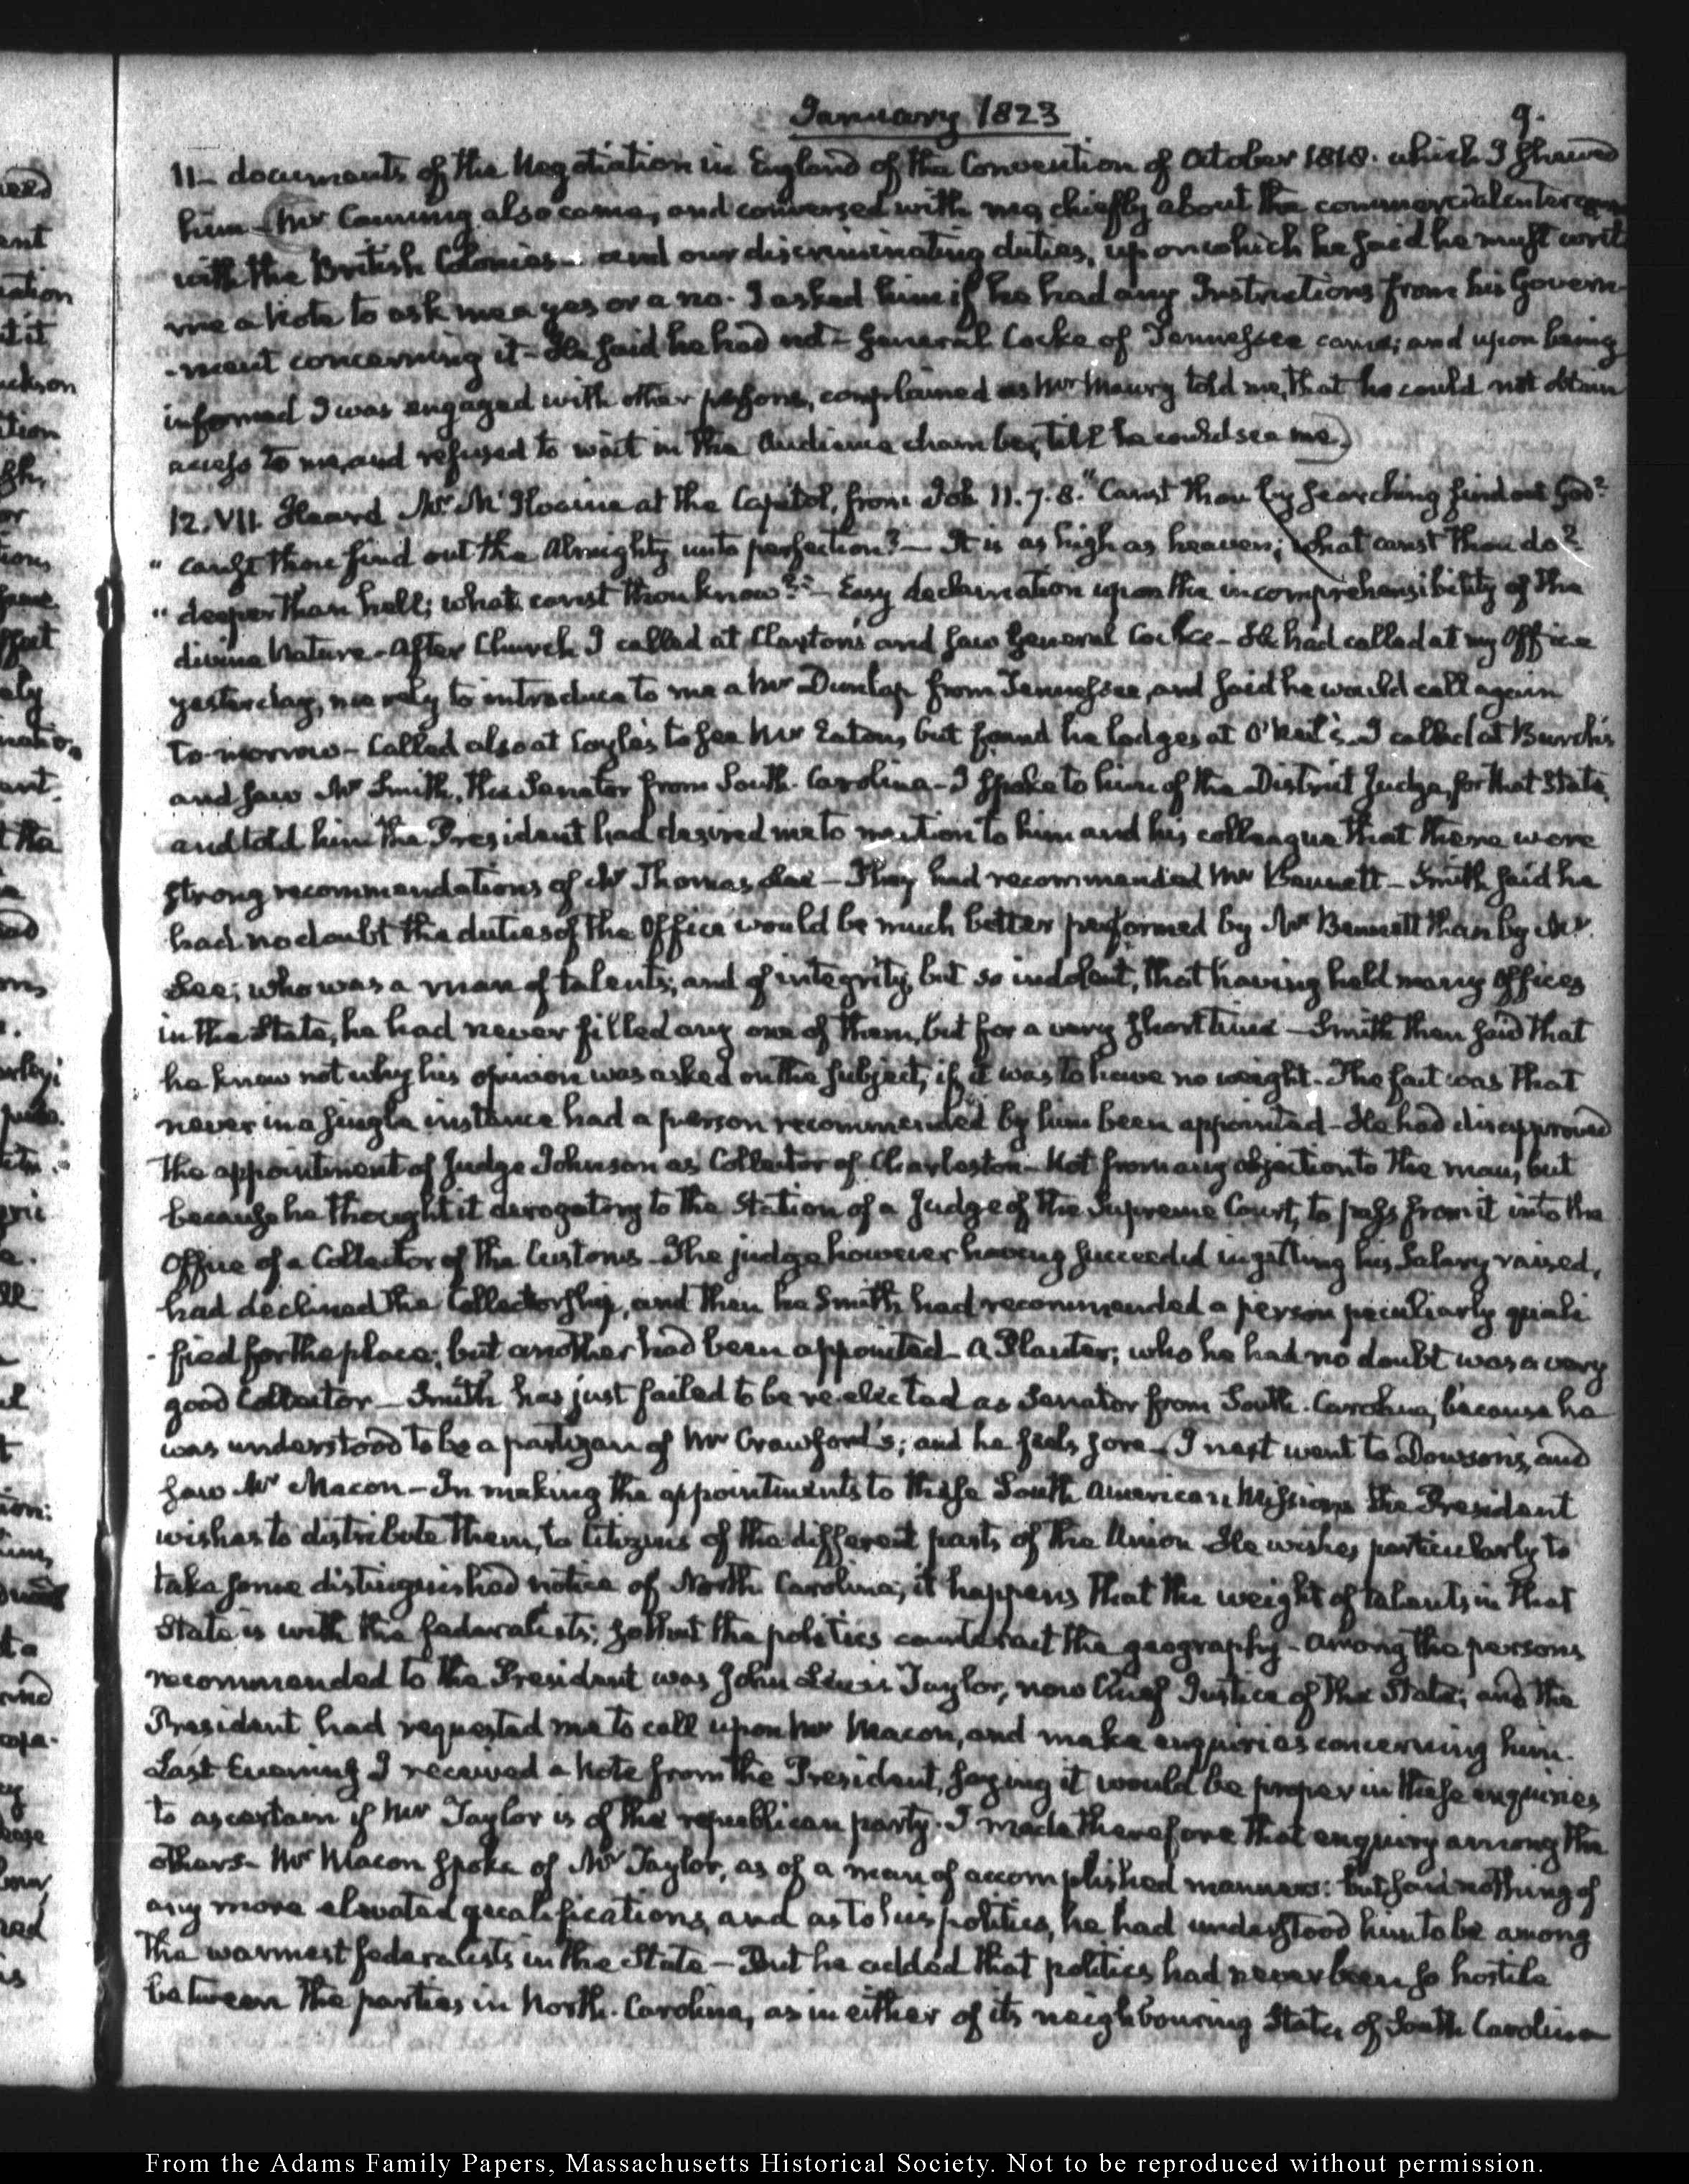 January 1823
9.
11— documents of the Negotiation in England of the Convention of October 1818. which I shewed
him— Mr Canning also came, and conversed with me, chiefly about the commercial intercourse
with the British Colonies— and our discriminating duties, upon which he said he must write
me a Note to ask me a yes or a no. I asked him if he had any Instructions from his Govern-
-ment concerning it— He said he had not— General Cocke of Tennessee came; and upon being
informed I was engaged with other persons, complained as Mr Maury told me, that he could not obtain
access to me, and refused to wait in the Audience chamber, till he could see me.)
12. VII. Heard Mr McIlvaine at the Capitol, from Job 11. 7. 8. "Canst thou by searching find out God?
" canst thou find out the Almighty unto perfection?— It is as high as heaven; what canst thou do?
" deeper than hell; what canst thou know?"— Easy declamation upon the incomprehensibility of the
divine Nature— After Church I called at Claxton's and saw General Cocke— He had called at my Office
yesterday, merely to introduce to me a Mr Dunlap from Tennessee, and said he would call again
to-morrow— Called also at Coyle's to see Mr Eaton, but found he lodges at O'Neil's. I called at Burch's
and saw Mr Smith, the Senator from South-Carolina— I spoke to him of the District Judge for that State,
and told him the President had desired me to mention to him and his colleague that there were
strong recommendations of Mr Thomas Lee— They had recommended Mr Bennett— Smith said he
had no doubt the duties of the Office would be much better performed by Mr Bennett than by Mr.
Lee; who was a man of talents, and of integrity, but so indolent, that having held many Offices
in the State, he had never filled any one of them, but for a very short time— Smith then said that
he knew not why his opinion was asked on the subject, if it was to have no weight. The fact was that
never in a single instance had a person recommended by him been appointed— He had disapproved
the appointment of Judge Johnson as Collector of Charleston— Not from any objection to the man, but
because he thought it derogatory to the Station of a Judge of the Supreme Court, to pass from it into the
Office of a Collector of the Customs— The judge however having succeeded in getting his Salary raised,
had declined the Collectorship, and then he Smith had recommended a person peculiarly quali
-fied for the place; but another had been appointed— A Planter; who he had no doubt was a very
good Collector— Smith has just failed to be re-elected as Senator from South-Carolina, because he
was understood to be a partizan of Mr Crawford's; and he feels sore— (I next went to Dowson's, and
saw Mr Macon— In making the appointments to these South American Missions the President
wishes to distribute them, to Citizens of the different parts of the Union. He wishes particularly to
take some distinguished notice of North Carolina; it happens that the weight of talents in that
State is with the federalists; so that the politics counteract the geography— Among the persons
recommended to the President was John Lewis Taylor, now Chief Justice of the State; and the
President had requested me to call upon Mr Macon, and make enquiries concerning him.
Last Evening I received a Note from the President, saying it would be proper in these enquiries
to ascertain if Mr Taylor is of the republican party. I made therefore that enquiry among the
others— Mr Macon spoke of Mr Taylor, as of a man of accomplished manners: but said nothing of
any more elevated qualifications, and as to his politics, he had understood him to be among
the warmest federalists in the State— But he added that politics had never been so hostile
between the parties in North-Carolina, as in either of its neighbouring States of South Carolina
From the Adams Family Papers, Massachusetts Historical Society. Not to be reproduced without permission.